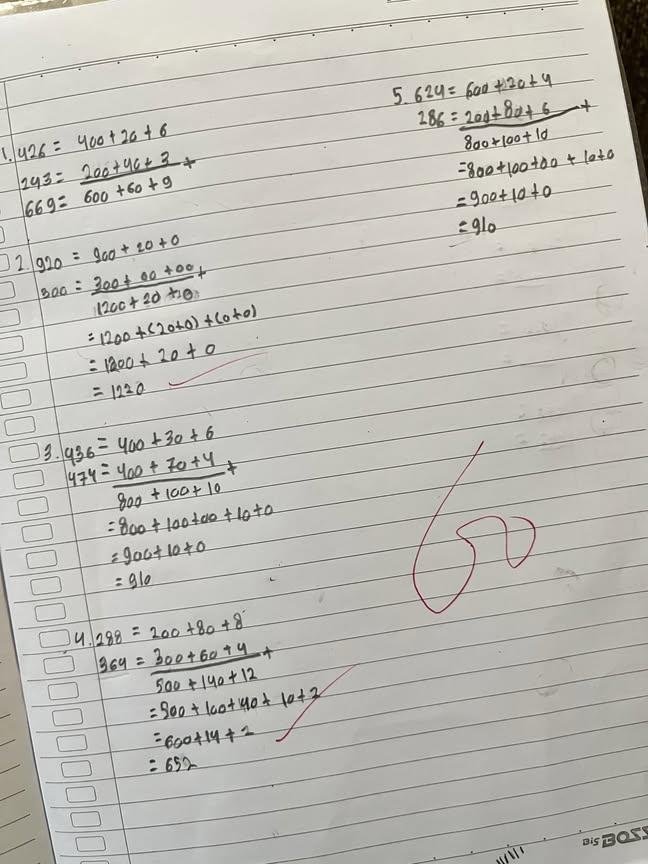 1. 426 = 400 + 20 + 6
243 = 200 + 40 + 3 +
669 = 600 + 60 + 9
2. 920 = 900 + 20 + 0
300 = 300 + 00 + 00 +
1200 + 20 + 0
= 1200 + (20+0) + (0+0)
= 1200 + 20 + 0
= 1220
3. 436 = 400 + 30 + 6
474 = 400 + 70 + 4 +
800 + 100 + 10
= 800 + 100 + 00 + 10 + 0
= 900 + 10 + 0
= 910
4. 288 = 200 + 80 + 8
364 = 300 + 60 + 4 +
500 + 140 + 12
= 500 + 100 + 40 + 10 + 2
= 600 + 14 + 2
= 652
5. 624 = 600 + 20 + 4
286 = 200 + 80 + 6 +
800 + 100 + 10
= 800 + 100 + 00 + 10 + 0
= 900 + 10 + 0
= 910
60
BIG BOSS